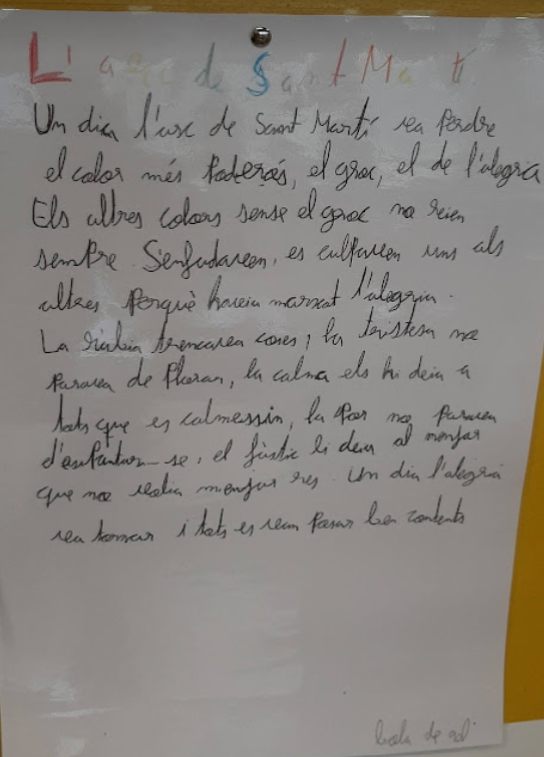 L'arc de Sant Martí
Un dia l'arc de Sant Martí va Perdre
el color més Poderós, el groc, el de l'alegria
Els altres colors sense el groc no reien
semPre. S'enfadaven, es culPaven uns als
altres Perquè havia marxat l'alegria.
La ràbia trencava coses, la tristesa no
Parava de Ploran, la calma els hi deia a
tots que es calmessin, la Por no Parava
d'esPantar-se, el fàstic li deia al menjar
que no volia menjar res. Un dia l'alegria
va tornar i tots es van Posar ben contents